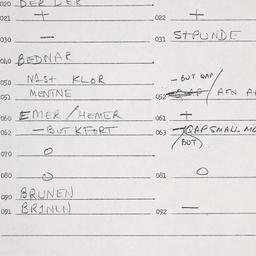 020 DER DER
021 + 022 +
030 — 031 STPUNDE
040 BEDNAR
050 N1St KLOR — BUT QAP
051 MENTNE 052 / AFN
060 EMER / HEMER 061 +
062 — BUT KFORT 063 QAP SMALL
BUT)
070 O
080 O 081 O
090 BRUNEN
091 BRINEN 092 —